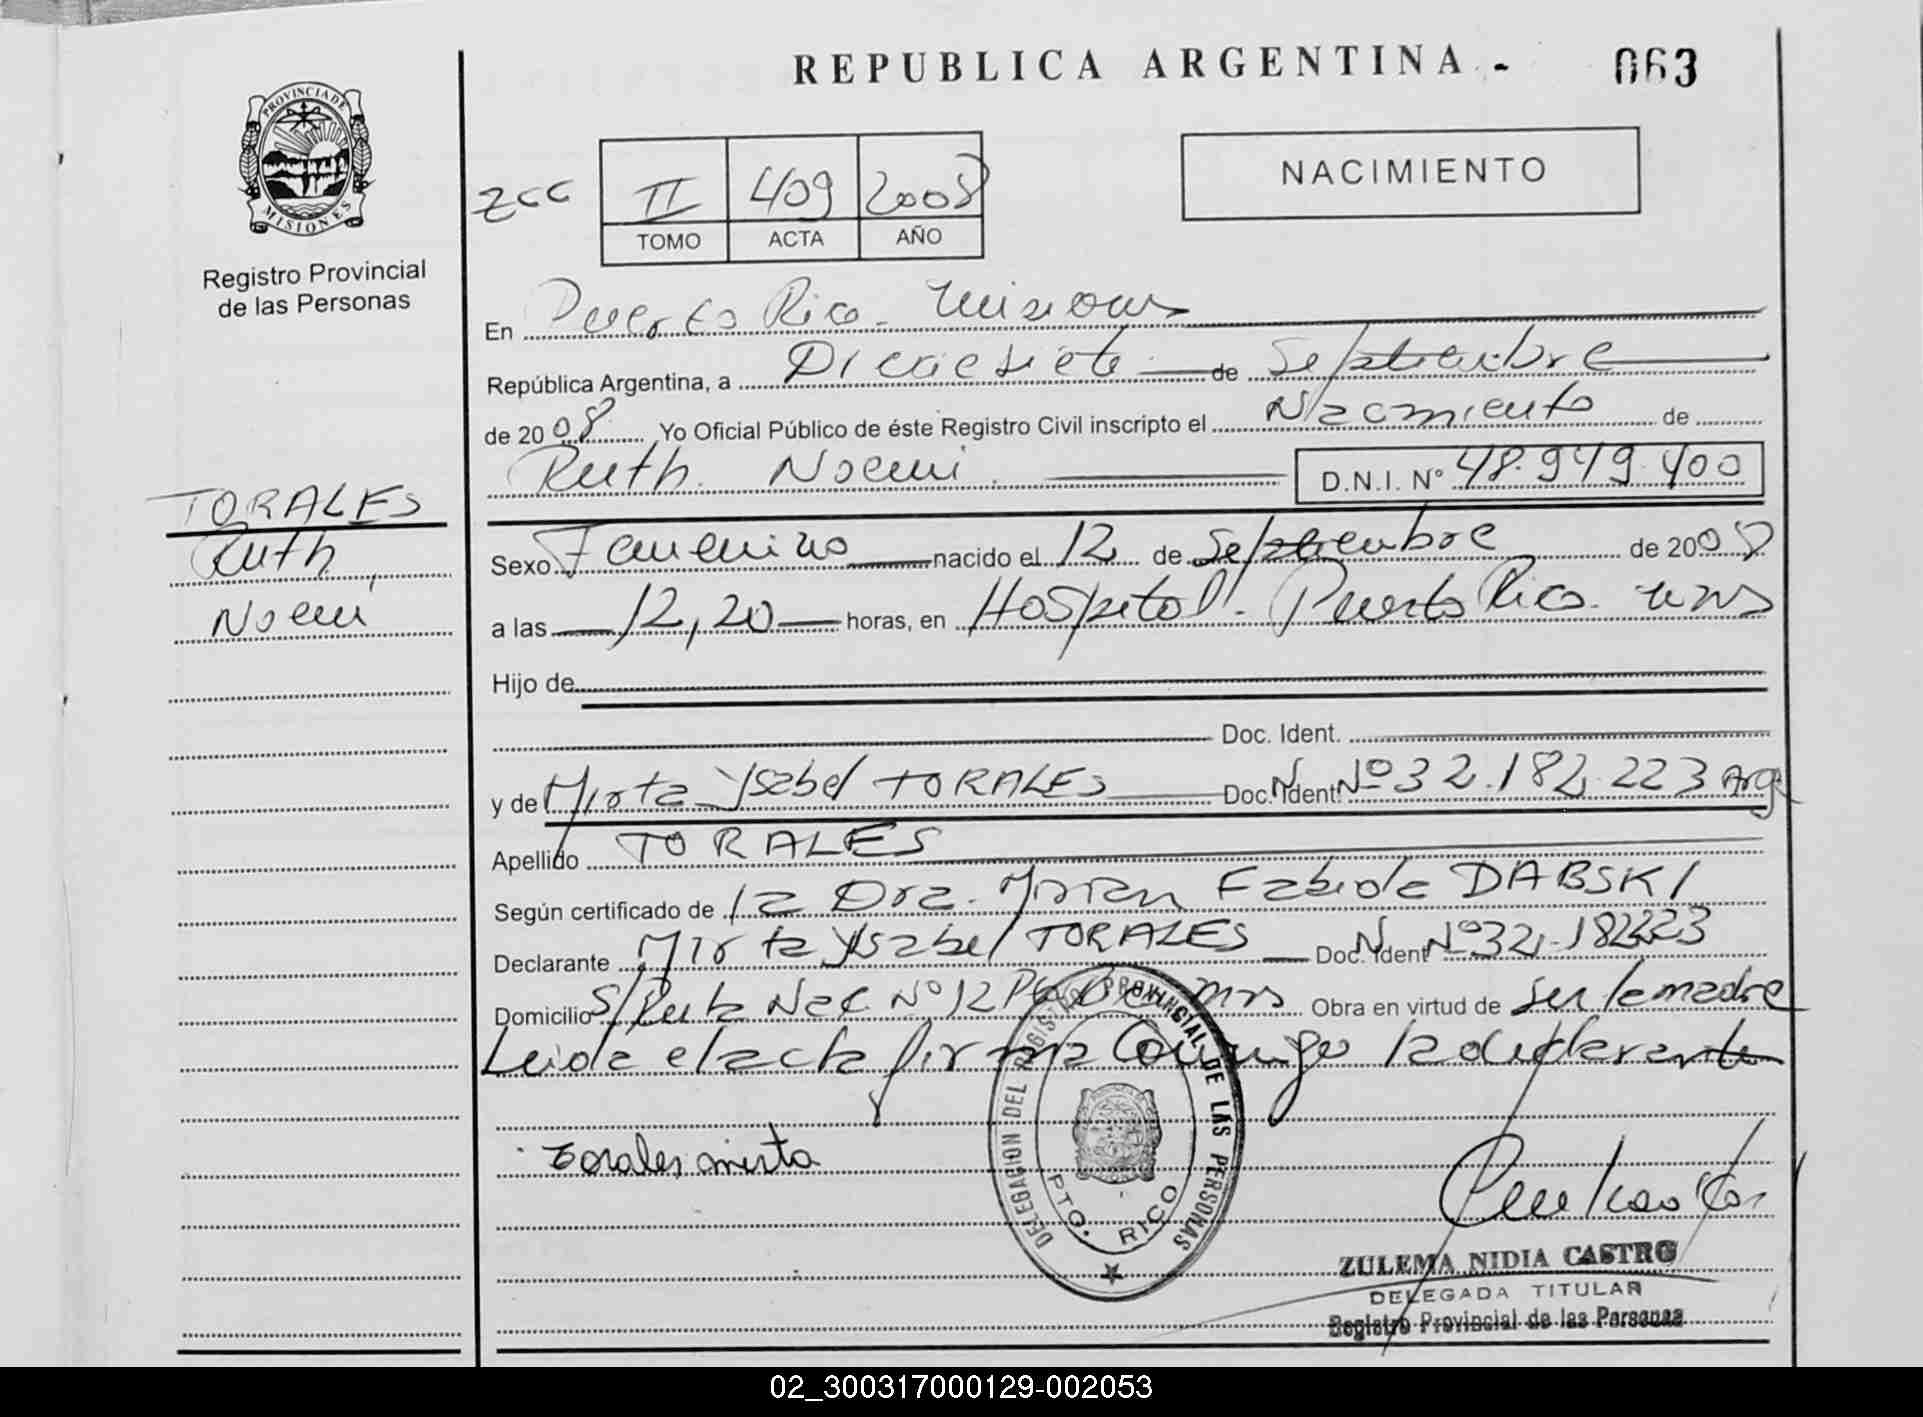 REPUBLICA ARGENTINA.-
063
PROVINCIA DE MISIONES
Registro Provincial
de las Personas
zcc
II 409 2008
TOMO ACTA AÑO
NACIMIENTO
En Puerto Rico. Misiones
República Argentina, a Diecisiete de Septiembre
de 2008 Yo Oficial Público de éste Registro Civil inscripto el Nacimiento de
Ruth Noemi. D.N.I. Nº 48.949.400
TORALES
Ruth
Noemi
Sexo Femenino nacido el 12 de Septiembre de 2008
a las 12,20 horas, en Hospital. Puerto Rico. Mns
Hijo de
Doc. Ident.
y de Mirta Ysabel TORALES Doc. Ident. N Nº 32.182.223 Arg
Apellido TORALES
Según certificado de la Dra. Mirian Fabiola DABSKI
Declarante Mirta Ysabel TORALES Doc. Ident N Nº 32.182223
Domicilio S/Ruta Nac. Nº 12 Mns Obra en virtud de ser la madre
Leida el acta firma Conmigo la declarante
Torales mirta
DELEGACION DEL REGISTRO PROVINCIAL DE LAS PERSONAS
PTO. RICO
ZULEMA NIDIA CASTRO
DELEGADA TITULAR
Registro Provincial de las Personas
02_300317000129-002053